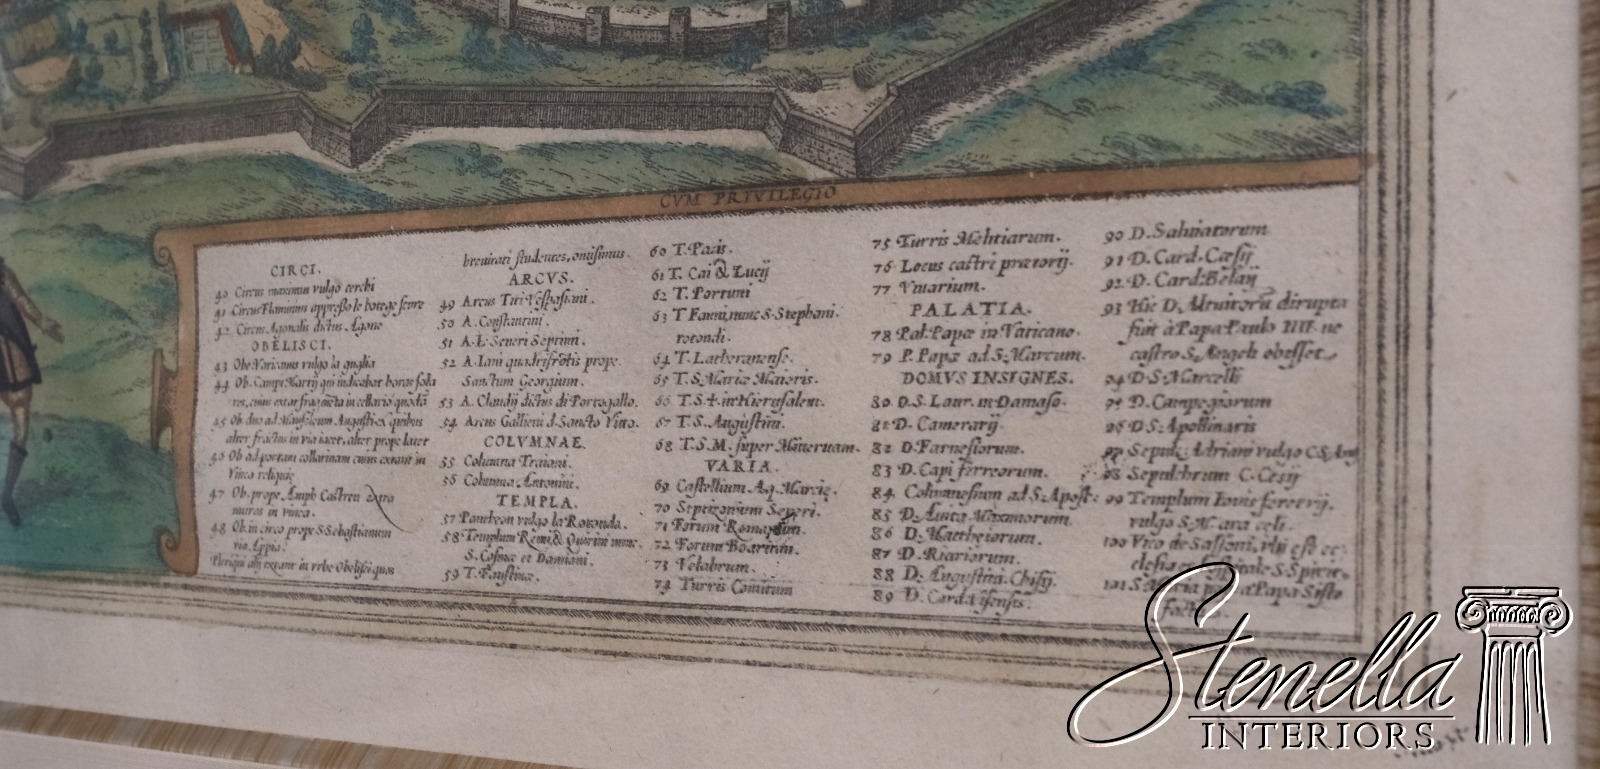 CVM PRIVILEGIO
CIRCI.
40 Circus maximus vulgo cerchi
41 Circus Flaminius appresso le botege scure
42 Circus Agonalis dictus Agone
OBELISCI.
43 Obe. Vaticanus vulgo la guglia
44 Ob. Campi Martij qui indicabat horas sola
res, cuius extat fragmēta in cellario quodā
45 Ob. duo ad Mausoleum Augusti ex quibus
alter fractus in via iacet, alter prope latet
46 Ob ad portam collatinam cuius extant in
Vinea reliquiæ
47 Ob. prope Amph Castren extra
muros in vinea.
48 Ob. in circo prope S. Sebastianum
via Appia.
Plerique alij extant in vrbe Obelisci quos
breuitati studentes, omisimus.
ARCVS.
49 Arcus Titi Vespasiani.
50 A. Constantini.
51 A. L. Seueri Septimi.
52 A. Iani quadrifrōtis prope
Sanctum Georgium.
53 A. Claudij dictus di Portogallo.
54 Arcus Gallieni d. Sancto Vito.
COLVMNAE.
55 Columna Traiani.
56 Columna Antonini.
TEMPLA.
57 Pantheon vulgo la Rotonda.
58 Templum Remi & Quirini nunc
S. Cosmæ et Damiani.
59 T. Faustinæ.
60 T. Pacis.
61 T. Cai & Lucij
62 T. Portuni
63 T Fauni, nunc S. Stephani.
rotondi.
64 T. Lateranense.
65 T. S. Mariæ Maioris.
66 T. S. + in Hierusalem.
67 T. S. Augustini.
68 T. S. M. super Mineruam.
VARIA.
69 Castellum Aq. Marciæ.
70 Septizonium Seueri.
71 Forum Romanum.
72 Forum Boarium.
73 Velabrum.
74 Turris Comitum
75 Turris Melitiarum.
76 Locus castri prætorij.
77 Viuarium.
PALATIA.
78 Pal. Papæ in Vaticano.
79 P. Papæ ad S. Marcum.
DOMVS INSIGNES.
80 D. S. Laur. in Damaso.
81 D. Camerarij.
82 D. Farnesiorum.
83 D. Capi ferreorum.
84 Columnesium ad S. Apost:
85 D. Maximorum.
86 D. Mattheiorum.
87 D. Riariorum.
88 D. Augustini Chisij.
89 D. Card. Visensis.
90 D. Saluiatorum
91 D. Card. Cæsij
92 D. Card. Belaij
93 Hic D. Altuitorū dirupta
fuit à Papa Paulo IIII. ne
castro S. Angeli obesset.
94 D. S. Marcelli
95 D. Campegiorum
96 D S. Apollinaris
97 Sepul: Adriani vulgo C. S. Ang
98 Sepulchrum C. Cestij
99 Templum Iouis feretrij.
vulgo S. M. ara celi.
100 Vico de Sassoni, vbi est ec:
clesia S. Spirit:
101 S. Maria Papa Sisto
Stenella
INTERIORS